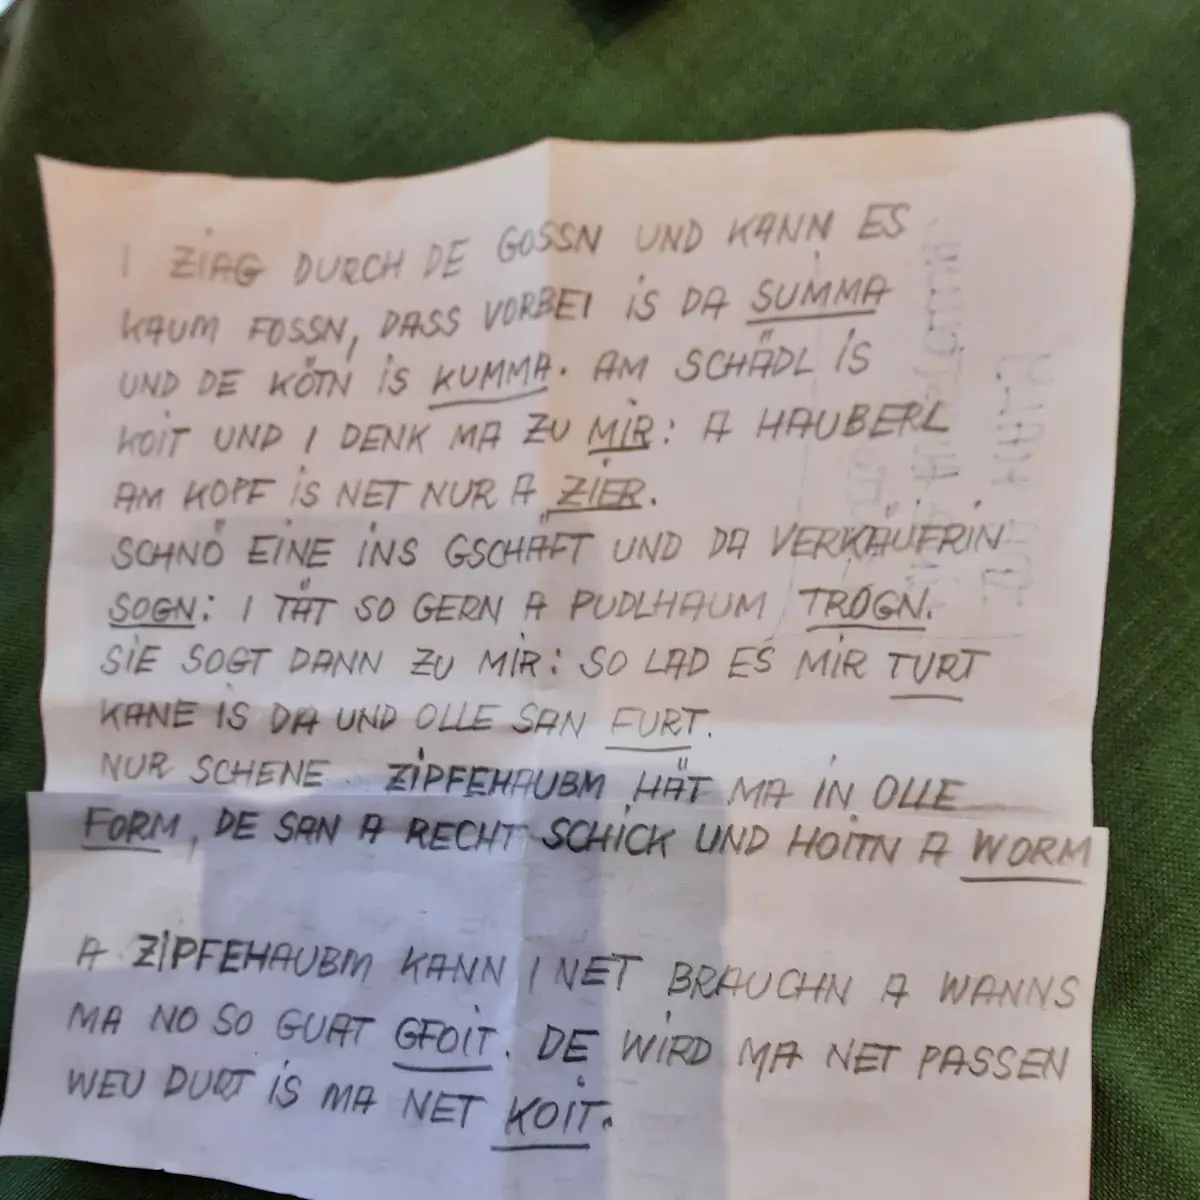 I ZIAG DURCH DE GOSSN UND KANN ES
KAUM FOSSN, DASS VORBEI IS DA SUMMA
UND DE KÖTN IS KUMMA. AM SCHÄDL IS
KOIT UND I DENK MA ZU MIR: A HAUBERL
AM KOPF IS NET NUR A ZIER.
SCHNÖ EINE INS GSCHÄFT UND DA VERKÄUFERIN
SOGN: I TÄT SO GERN A PUDLHAUM TROGN.
SIE SOGT DANN ZU MIR: SO LAD ES MIR TURT
KANE IS DA UND OLLE SAN FURT.
NUR SCHENE ZIPFEHAUBM HÄT MA IN OLLE
FORM, DE SAN A RECHT SCHICK UND HOITN A WORM
A ZIPFEHAUBM KANN I NET BRAUCHN A WANNS
MA NO SO GUAT GFOIT. DE WIRD MA NET PASSEN
WEU DURT IS MA NET KOIT.